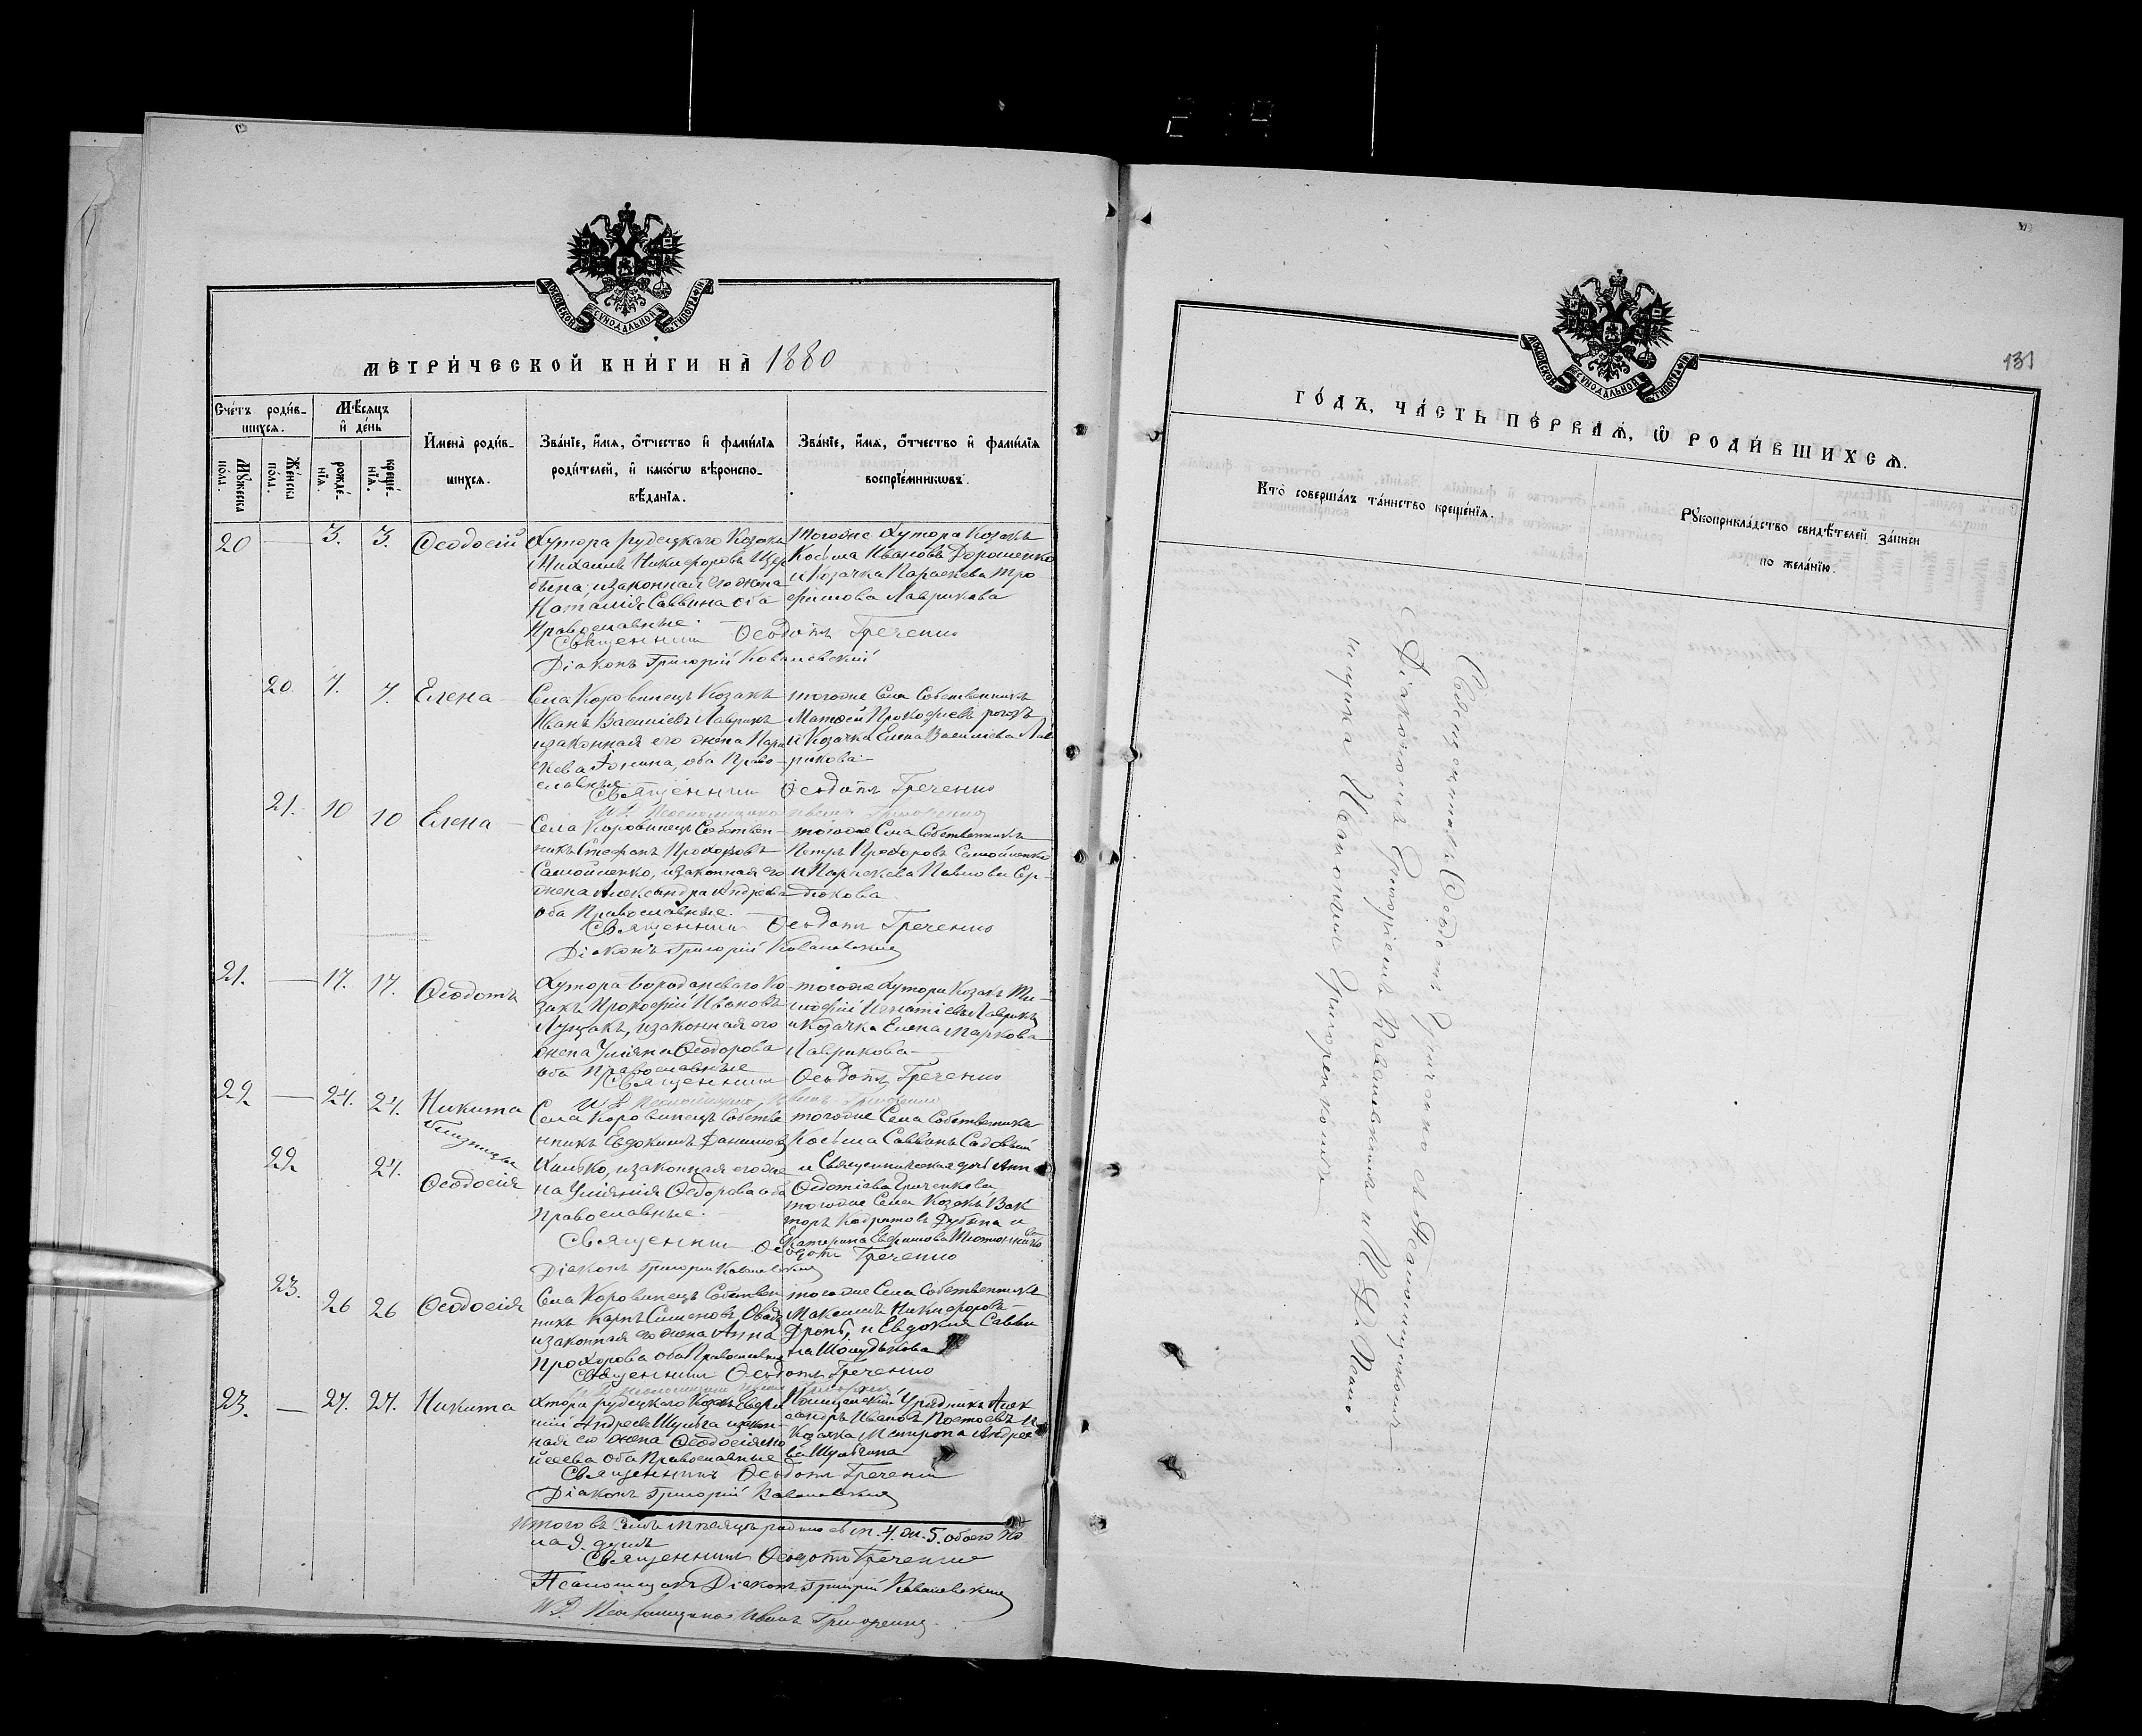 МОСКОВСКОЙ СѴНОДАЛЬНОЙ ТИПОГРАФІИ
МЕТРИ́ЧЕСКОЙ КНИ́ГИ НА̀ 1880
Сче́тъ роди́в-
шихсѧ.
Мѣ́сѧцъ
и҆ де́нь
Мꙋ́жеска
по́ла.
Же́нска
по́ла.
рожде́-
нїѧ.
креще́-
нїѧ.
И҆мена̀ роди́в-
шихсѧ.
Зва́нїе, и҆́мѧ, ѻ҆́тчество и҆ фами́лїѧ
роди́телей, и҆ како́гѡ вѣроиспо-
вѣ́данїѧ.
Зва́нїе, и҆́мѧ, ѻ҆́тчество и҆ фами́лїѧ
воспрїе́мникѡвъ.
20 — 3. 3. Ѳеодосій
Хутора рудецкаго Козакъ
Михаилъ Никифоровъ Щер
бина, и законная его жена
Наталія Саввина оба
Православные.
тогоже Хутора Козакъ
Косьма Ивановъ Дорошенко
и Козачка Параскева Тро
фимова Лаврикова
Священникъ Ѳеодотъ Греченко
Діаконъ Григорій Ковалевскій
20. 7. 7. Елена
Села Коровинецъ Козакъ
Иванъ Василіевъ Лаврикъ
и законная его жена Пара
скева Іонина, оба Право-
славные.
тогоже Села Собственникъ
Матѳей Прокофіевъ рогозъ
и Козачка Елена Василіева Лав
рикова
Священникъ Ѳеодотъ Греченко
И. Д. Псаломщика Иванъ Григоренко
21. 10 10 Елена
Села Коровинецъ Собствен-
никъ Стефанъ Прохоровъ
Самойленко, и законная его
жена Александра Андреева
оба Православные.
тогоже Села Собственникъ
Петръ Прохоровъ Самойленко
и Параскева Павлова Сер-
дюкова
Священникъ Ѳеодотъ Греченко
Діаконъ Григорій Ковалевскій
21. — 17. 17. Ѳеодотъ
Хутора Бородаеваго Ко-
закъ Прокофій Ивановъ
Луцакъ, и законная его
жена Уліяна Ѳеодорова
оба Православные
тогоже Хутора Козакъ Ти-
мофій Игнатіевъ Лаврикъ
и Козачка Елена Маркова
Лаврикова
Священникъ Ѳеодотъ Греченко
И. Д. Псаломщика Иванъ Григоренко
22. — 24. 24. Никита
близнецы
22. 24. Ѳеодосія
Села Коровинецъ Собстве
нникъ Евдокимъ Даниловъ
и законная его же
на Уліянія Ѳедорова оба
Православные.
тогоже Села Собственникъ
Косьма Саввинъ Садовый
и Священническая дочь Анна
Ѳедотіева Гриченкова
тогоже Села Козакъ Вик
торъ Кодратовъ Дубина и
Екатерина Ефимова
Священникъ Ѳеодотъ Греченко
Діаконъ Григорій Ковалевскій
23. 26 26 Ѳеодосія
Села Коровинецъ Собствен
никъ Карпъ Симеоновъ
и законная его жена Анна
Прохорова оба Православные
тогоже Села Собственникъ
Максимъ Никифоровъ
и Евдокія Савви
на
Священникъ Ѳеодотъ Греченко
23. — 27. 27. Никита
Хутора рудецкаго Козакъ
Андреевъ Шульга и закон-
ная его жена Ѳеодосія
оба Православные
Полицейскій Урядникъ Алек
сандръ Ивановъ и
Козачка Андрее
ва Шульгина
Священникъ Ѳеодотъ Греченко
Діаконъ Григорій Ковалевскій
Итого въ семъ мѣсяцѣ родилось м. 4. ж. 5. обоего по
ла 9. душъ
Священникъ Ѳеодотъ Греченко
Псаломщикъ Діаконъ Григорій Ковалевскій
И. Д. Псаломщика Иванъ Григоренко.
МОСКОВСКОЙ СѴНОДАЛЬНОЙ ТИПОГРАФІИ
131
ГО́ДЪ, ЧА́СТЬ ПЕ́РВАѦ, Ѡ҆ РОДИ́ВШИХСѦ.
Кто̀ соверша́лъ та́инство креще́нїѧ.
Рꙋкоприкла́дство свидѣ́телей за́писи
по жела́нїю.
Священникъ Ѳеодотъ Гриченко съ Псаломщикомъ
Діакономъ Григоріемъ Ковалевскимъ и И. Д. Псало
мщика Иваномъ Григоренкомъ